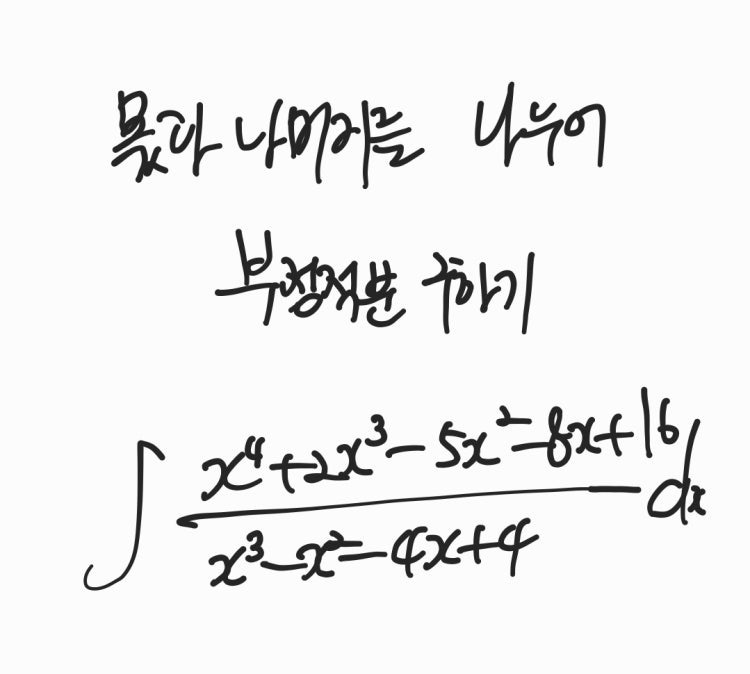 몫과 나머지를 나누어
부정적분 구하기
∫ (x⁴+2x³-5x²-8x+16)/(x³-x²-4x+4) dx